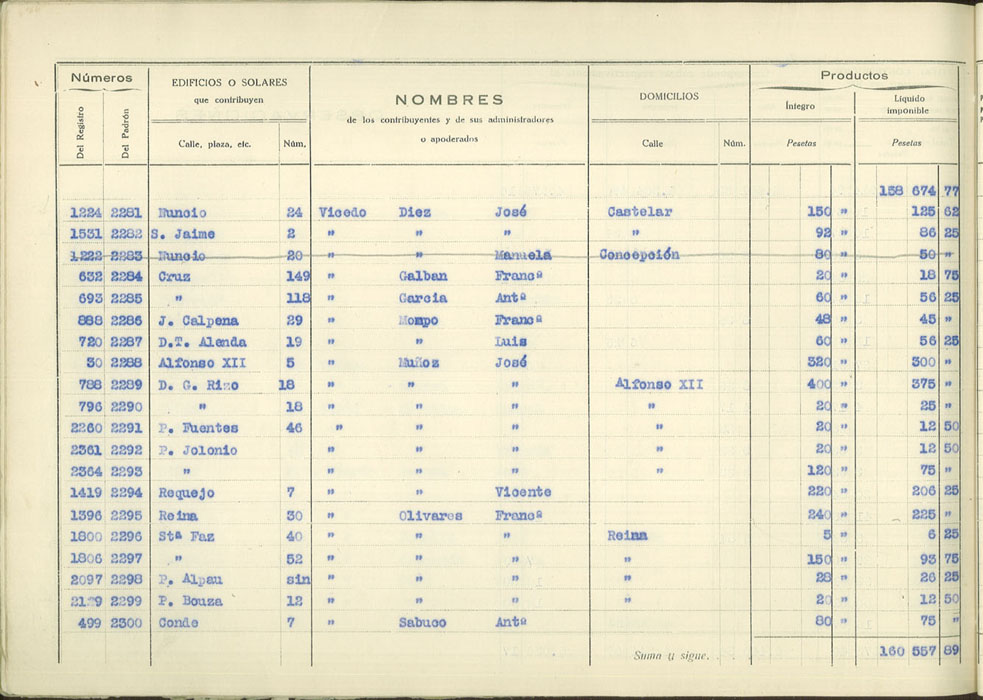 Números EDIFICIOS O SOLARES que contribuyen NOMBRES de los contribuyentes y de sus administradores o apoderados DOMICILIOS Productos
Íntegro Líquido imponible
Del Registro Del Padrón Calle, plaza, etc. Núm, Calle Núm. Pesetas Pesetas
158 674 77
1224 2281 Nuncio 24 Vicedo Diez José Castelar 150 " 125 62
1531 2282 S. Jaime 2 " " " " 92 " 86 25
1222 2283 Nuncio 20 " " Manuela Concepción 80 " 50 "
632 2284 Cruz 149 " Galban Francª 20 " 18 75
693 2285 " 118 " Garcia Antª 60 " 56 25
888 2286 J. Calpena 29 " Mompo Francª 48 " 45 "
720 2287 D.T. Alenda 19 " " Luis 60 " 56 25
30 2288 Alfonso XII 5 " Muñoz José 320 " 300 "
788 2289 D. G. Rizo 18 " " " Alfonso XII 400 " 375 "
796 2290 " 18 " " " " 20 " 25 "
2260 2291 P. Fuentes 46 " " " " 20 " 12 50
2361 2292 P. Jolonio " " " " 20 " 12 50
2364 2293 " " " " " 120 " 75 "
1419 2294 Requejo 7 " " Vicente 220 " 206 25
1396 2295 Reina 30 " Olivares Francª 240 " 225 "
1800 2296 Stª Faz 40 " " " Reina 5 " 6 25
1806 2297 " 52 " " " " 150 " 93 75
2097 2298 P. Alpau sin " " " " 28 " 26 25
2299 P. Bouza 12 " " " " 20 " 12 50
499 2300 Conde 7 " Sabuco Antª 80 " 75 "
Suma y sigue. 160 557 89